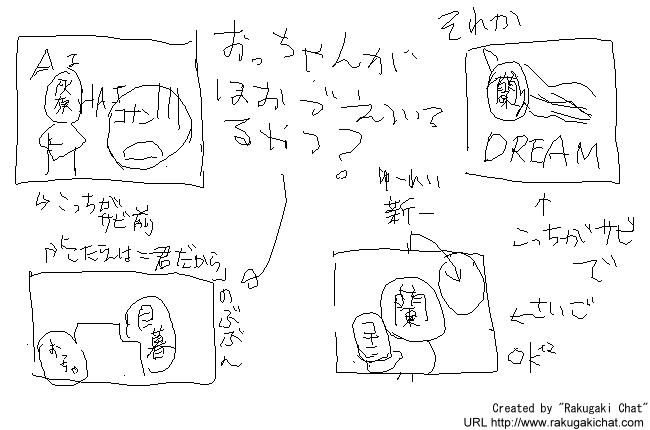 おっちゃんが
ほおづえついて
るやつ?
それか
AI
灰原
HAI
コナン
蘭
DREAM
↳こっちが
サビ前
↱「こたえは=君だから」
のぶぶん
おっちゃ
目暮
ゆーれい
新一
蘭
コナン
↑
こっちがサビ
で
←さいご
OK??
Created by "Rakugaki Chat"
URL http://www.rakugakichat.com